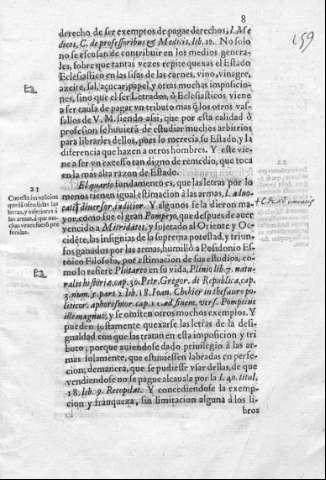 8
159
derecho de ser exemptos de pagar derechos, l. Me
dicos, C. de professoribus & Medicis, lib. 10. No solo
no se escusan de contribuir en los medios genera-
les, sobre que tantas vezes repite quexas el Estado
Eclesiastico en las sisas de las carnes, vino, vinagre,
azeite, sal, açucar, papel, y otras muchas imposicio-
nes, sino que el ser Letrados, ò Eclesiasticos viene
a ser causa de pagar vn tributo mas q̃ los otros vas-
sallos de V. M. siendo assi, que por esta calidad ò
profession se huuierā de estudiar muchos arbitrios
para librarles dellos, pues lo merecia su Estado, y la
diferencia que hazen a otros hombres. Y este vie-
ne a ser vn excesso tan digno de remedio, que toca
en la mas alta razon de Estado.
El quarto fundamento es, que las letras por lo
menos tienen igual estimacion à las armas, l. aduo-
cati diuersor. iudicior. Y algunos se la dieron ma-
yor, como fue el gran Pompeyo, que despues de auer
vencido a Mitridates, y sujetado al Oriente y Oc-
cidẽte, las insignias de su suprema potestad, y triun-
fos ganados por las armas, humillò a Posidonio Es-
toico Filosofo, por estimacion de sus estudios, co-
mo lo refiere Plutarco en su vida, Plinio lib. 7. natu-
ralis historia, cap. 30. Petr. Gregor. de Republica, cap.
3. num. 5. part. 2. lib. 18. Ioan. Chokier in thesauro po-
liticor. aphorismor. cap. 11. ad finem, vers. Pompeius
ille magnus, y se omiten otros muchos exemplos. Y
pueden justamente quexarse las letras de la desi-
gualdad con que las tratan en esta imposicion y tri
buto; porque auiendose dado priuilegio à las ar-
mas solamente, que estuuiessen labradas en perfe-
cion; demanera, que se pudiesse vsar dellas, de que
vendiendose no se pague alcauala por la l. 40. titul.
18. lib. 9. Recopilat. Y concediendose la exemp-
cion y franqueza, sin limitacion alguna à los li-
bros
21
Con esta imposicion
quedā ofendidas las
letras, y inferiores à
las armas, à que mu-
chas vezes fuerō pre
feridas.